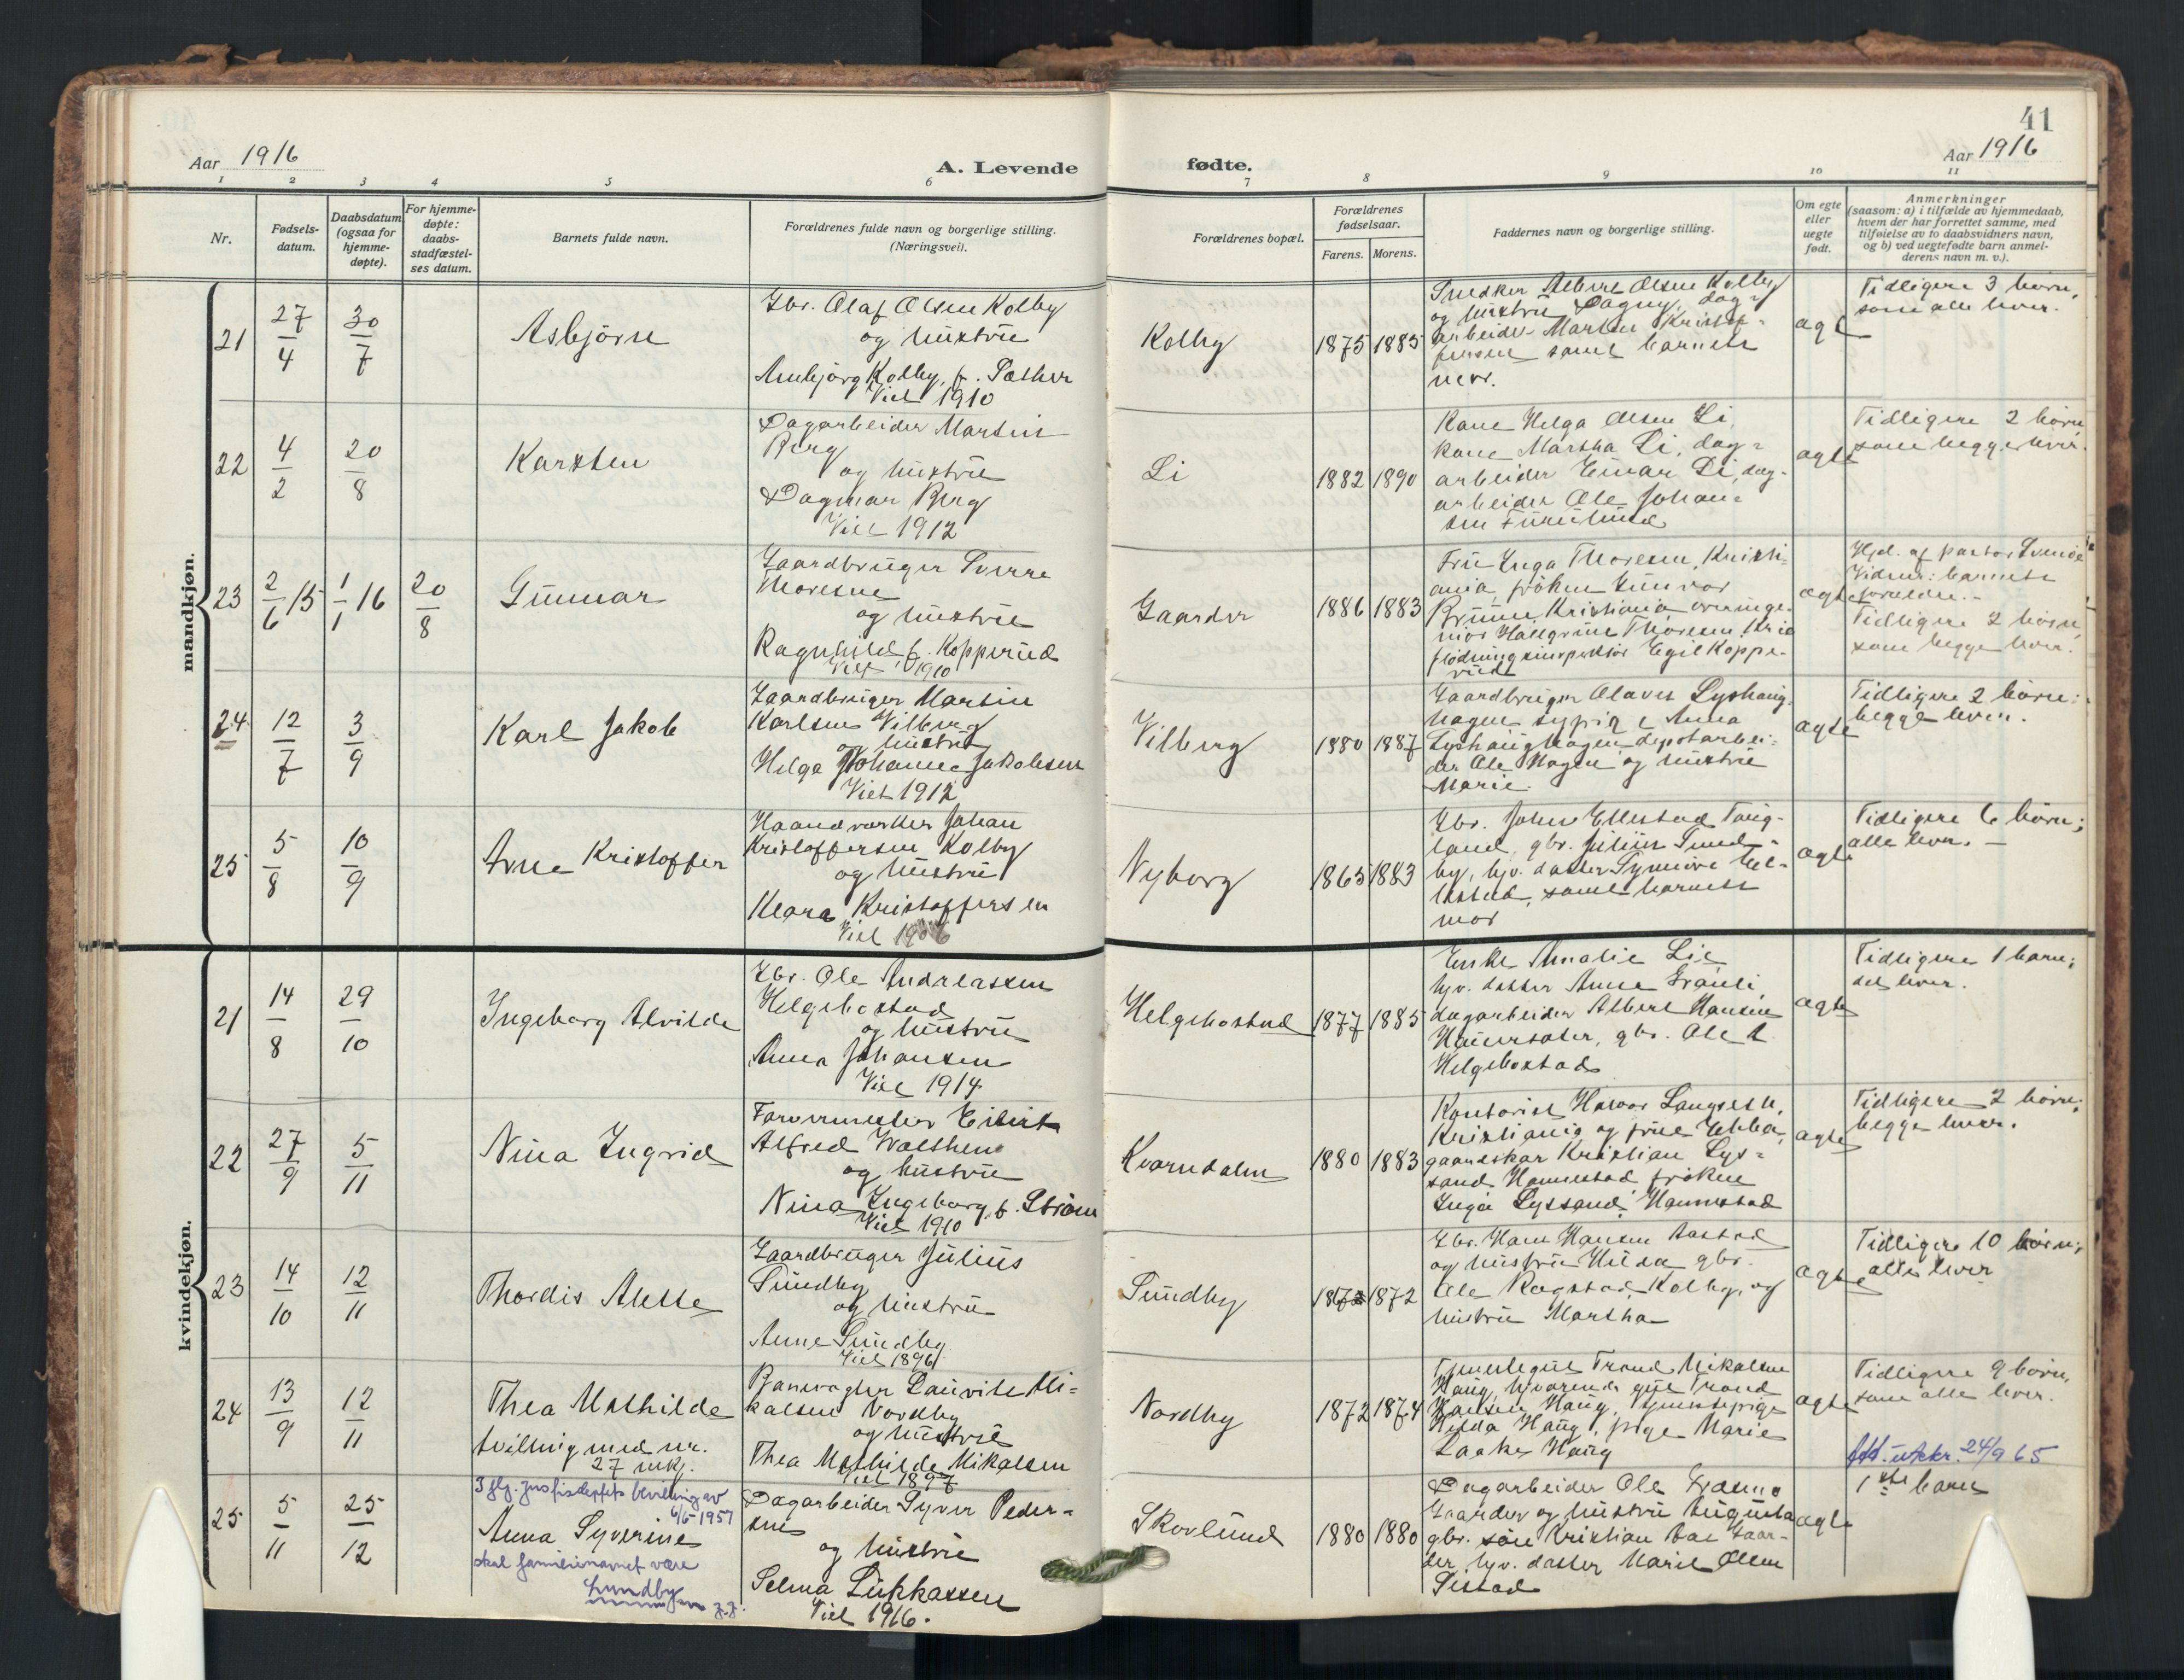 41
Aar 1916
A. Levende
fødte.
Aar 1916
1 2 3 4 5 6 7 8 9 10 11
Nr.
Fødsels-
datum.
Daabsdatum
(ogsaa for
hjemme-
døpte).
For hjemme-
døpte:
daabs-
stadfæstel-
ses datum.
Barnets fulde navn.
Forældrenes fulde navn og borgerlige stilling.
(Næringsvei).
Forældrenes bopæl.
Forældrenes
fødselsaar.
Farens. Morens.
Faddernes navn og borgerlige stilling.
Om egte
eller
uegte
født.
Anmerkninger
(saasom: a) i tilfælde av hjemmedaab,
hvem der har forrettet samme, med
tilføielse av to daabsvidners navn,
og b) ved uegtefødte barn anmel-
derens navn m. v.).
mandkjøn.
21
27/4
30/7
Asbjørn
Gbr. Olaf Olsen Kolby
og hustru
Kolby, f. Sæther
Viet 1910
Kolby
1875 1885
Snedker Olsen Kolby
og hustru Dagny, dag-
arbeider Martin Kristof-
fersen samt barnets
mor.
ægte
Tidligere 3 børn,
som alle lever.
22
4/2
20/8
Karsten
Dagarbeider Martin
Berg
og hustru
Dagmar Berg
Viet 1912
Li
1882 1890
Kone Helga Olsen Li,
kone Martha Li, dag-
arbeider Einar Li, dag-
arbeider Ole Johan-
sen Furulund
ægte
Tidligere 2 børn
som begge lever.
23
2/6 15
1/1 16
20/8
Gunnar
Gaardbruger Sverre
Thoresen
og hustru
Ragnhild f. Kopperud
Viet 1910
Gaarder
1886 1883
Fru Inga Thoresen, Kristi-
ania, frøken Gunvor
Bruun, Kristiania overinge-
niør Hallgrim Thoresen, Kria
flødningsinspektør Egil Koppe-
rud
ægte
Hjd. af pastor
Vidner: barnets
forældre.-
Tidligere 2 børn,
som begge lever.
24
12/7
3/9
Karl Jakob
Gaardbruger Martin
Karlsen Vilberg
og hustru
Helga Johanne Jakobsen
Viet 1912
Vilberg
1880 1887
Gaardbruger Olaves Lyshaug-
hagen, Anna
Lyshaughagen, depotarbei-
der Ole Hagen og hustru
Marie.
ægte
Tidligere 2 børn;
begge lever.
25
5/8
10/9
Arne Kristoffer
Haandværker Johan
Kristoffersen Kolby
og hustru
Klara Kristoffersen
Viet 1906
Nyborg
1865 1883
Gbr. John Ellestad Taug-
land, gbr. Julius Sund-
by, hjv. datter Synnøve El-
lestad, samt barnets
mor
ægte
Tidligere 6 børn;
alle lever. -
kvindekjøn.
21
14/8
29/10
Ingeborg Alvilde
Gbr. Ole Andreassen
Helgebostad
og hustru
Anna Johansen
Viet 1914
Helgebostad
1877 1885
Enke Amalie Lie
hjv. datter Anna
dagarbeider Albert Hansen
gbr. Ole A.
Helgebostad
ægte
Tidligere 1 barn;
det lever.
22
27/9
5/11
Nina Ingrid
Farvermester
Alfred
og hustru
Nina Ingeborg f. Strøm
Viet 1910
Kverndalen
1880 1883
Kontorist Halvor Langseth,
Kristiania og frue Ebba,
gaardskar Kristian Lys-
sand Hammestad frøken
Inga Lyssand, Hammestad
ægte
Tidligere 2 børn;
begge lever.
23
14/10
12/11
Thordis Alette
Gaardbruger Julius
Sundby
og hustru
Anne Sundby
Viet 1896
Sundby
1872
Gbr. Hans Hansen Aastad
og hustru Hilda gbr.
Ole Rogstad, Kolby, og
hustru Martha
ægte
Tidligere 10 børn;
alle lever
24
13/9
12/11
Thea Mathilde
tvilling med nr.
27 mkj.
Banevogter Lauritz Mi-
kalsen Nordby
og hustru
Thea Mathilde Mikalsen
Viet 1897
Nordby
1872 1874
Tjenestegut Trond Mikalsen
Haug, hjværende gut Trond
Karlsen Haug, tjenestepige
Hilda Haug, pige Marie
Laake Haug
ægte
Tidligere 9 børn,
som alle lever.
Att. utskr. 24/9 65
25
5/11
25/12
I flg. Justisdeptets bevilling av
6/6-1951
Anna Syverine
skal familienavnet være
Lundby
Dagarbeider Syver Peder-
sen
og hustru
Selma Lukkassen
Viet 1916.
Skovlund
1880 1880
Dagarbeider Ole
Gaarder og hustru Augusta
gbr. søn Kristian Gaar-
der, hjv. datter Marie Olsen
ægte
1ste barn